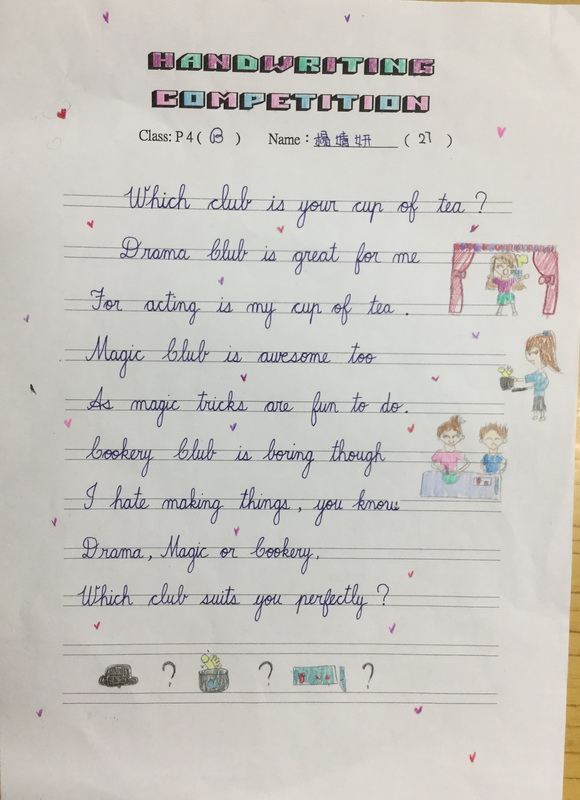 HANDWRITING
COMPETITION
Class: P 4 ( B ) Name : 楊晴妍 ( 27 )
Which club is your cup of tea ?
Drama Club is great for me
For acting is my cup of tea .
Magic Club is awesome too
As magic tricks are fun to do.
Cookery Club is boring though
I hate making things, you know
Drama, Magic or Cookery,
Which club suits you perfectly ?
? ? ?